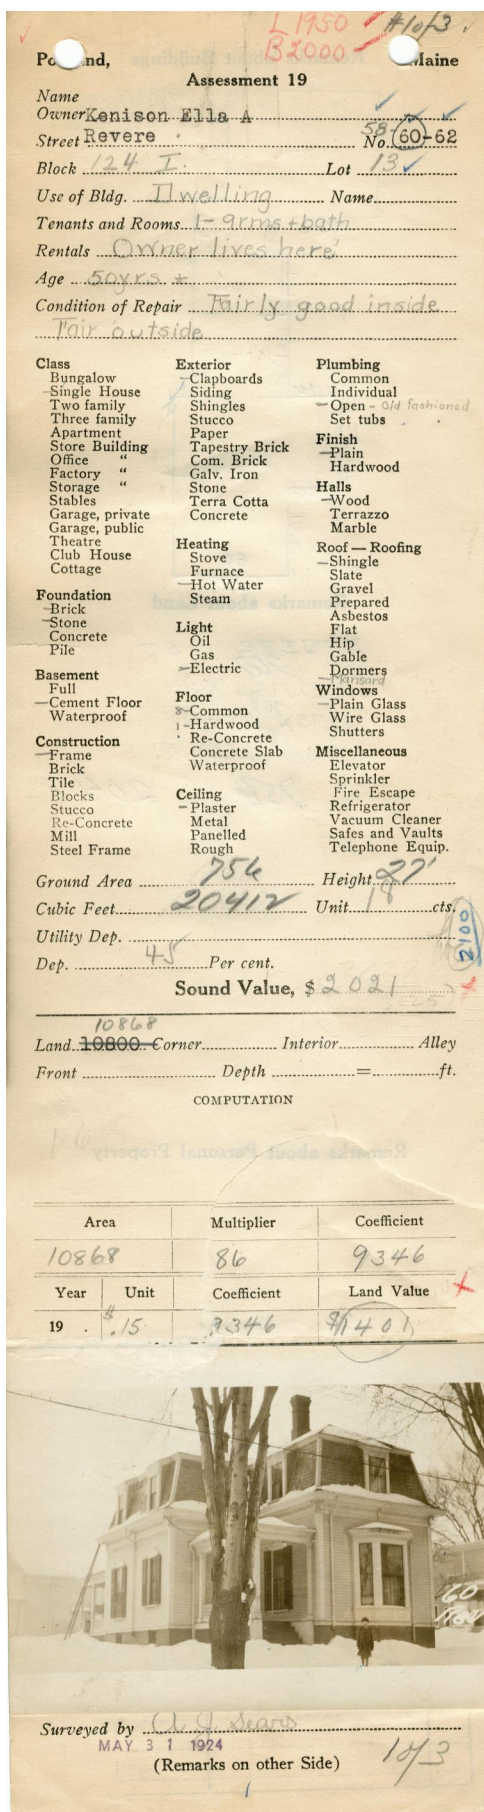 L 1950 #1 of 3.
B 2000
Portland, Maine
Assessment 19
Name
Owner Kenison Ella A
Street Revere No. 58 60-62
Block 124 I Lot 13
Use of Bldg. Dwelling Name
Tenants and Rooms 1-9rms+bath
Rentals Owner lives here
Age 50yrs ±
Condition of Repair Fairly good inside
Fair outside
Class
Bungalow
Single House
Two family
Three family
Apartment
Store Building
Office "
Factory "
Storage "
Stables
Garage, private
Garage, public
Theatre
Club House
Cottage
Foundation
Brick
Stone
Concrete
Pile
Basement
Full
Cement Floor
Waterproof
Construction
Frame
Brick
Tile
Blocks
Stucco
Re-Concrete
Mill
Steel Frame
Exterior
Clapboards
Siding
Shingles
Stucco
Paper
Tapestry Brick
Com. Brick
Galv. Iron
Stone
Terra Cotta
Concrete
Heating
Stove
Furnace
Hot Water
Steam
Light
Oil
Gas
Electric
Floor
8-Common
1-Hardwood
Re-Concrete
Concrete Slab
Waterproof
Ceiling
Plaster
Metal
Panelled
Rough
Plumbing
Common
Individual
Open - Old fashioned
Set tubs
Finish
Plain
Hardwood
Halls
Wood
Terrazzo
Marble
Roof — Roofing
Shingle
Slate
Gravel
Prepared
Asbestos
Flat
Hip
Gable
Dormers
Mansard
Windows
Plain Glass
Wire Glass
Shutters
Miscellaneous
Elevator
Sprinkler
Fire Escape
Refrigerator
Vacuum Cleaner
Safes and Vaults
Telephone Equip.
Ground Area 756 Height 27'
Cubic Feet 20412 Unit 18 cts.
Utility Dep.
2100
Dep. 45 Per cent.
Sound Value, $ 2021
10868
Land 10800 Corner Interior Alley
Front Depth = ft.
COMPUTATION
Area Multiplier Coefficient
10868 86 9346
Year Unit Coefficient Land Value
19 . $.15 9346 $1401
60
Rev
Surveyed by A J Sears
MAY 31 1924
(Remarks on other Side) 1 of 3